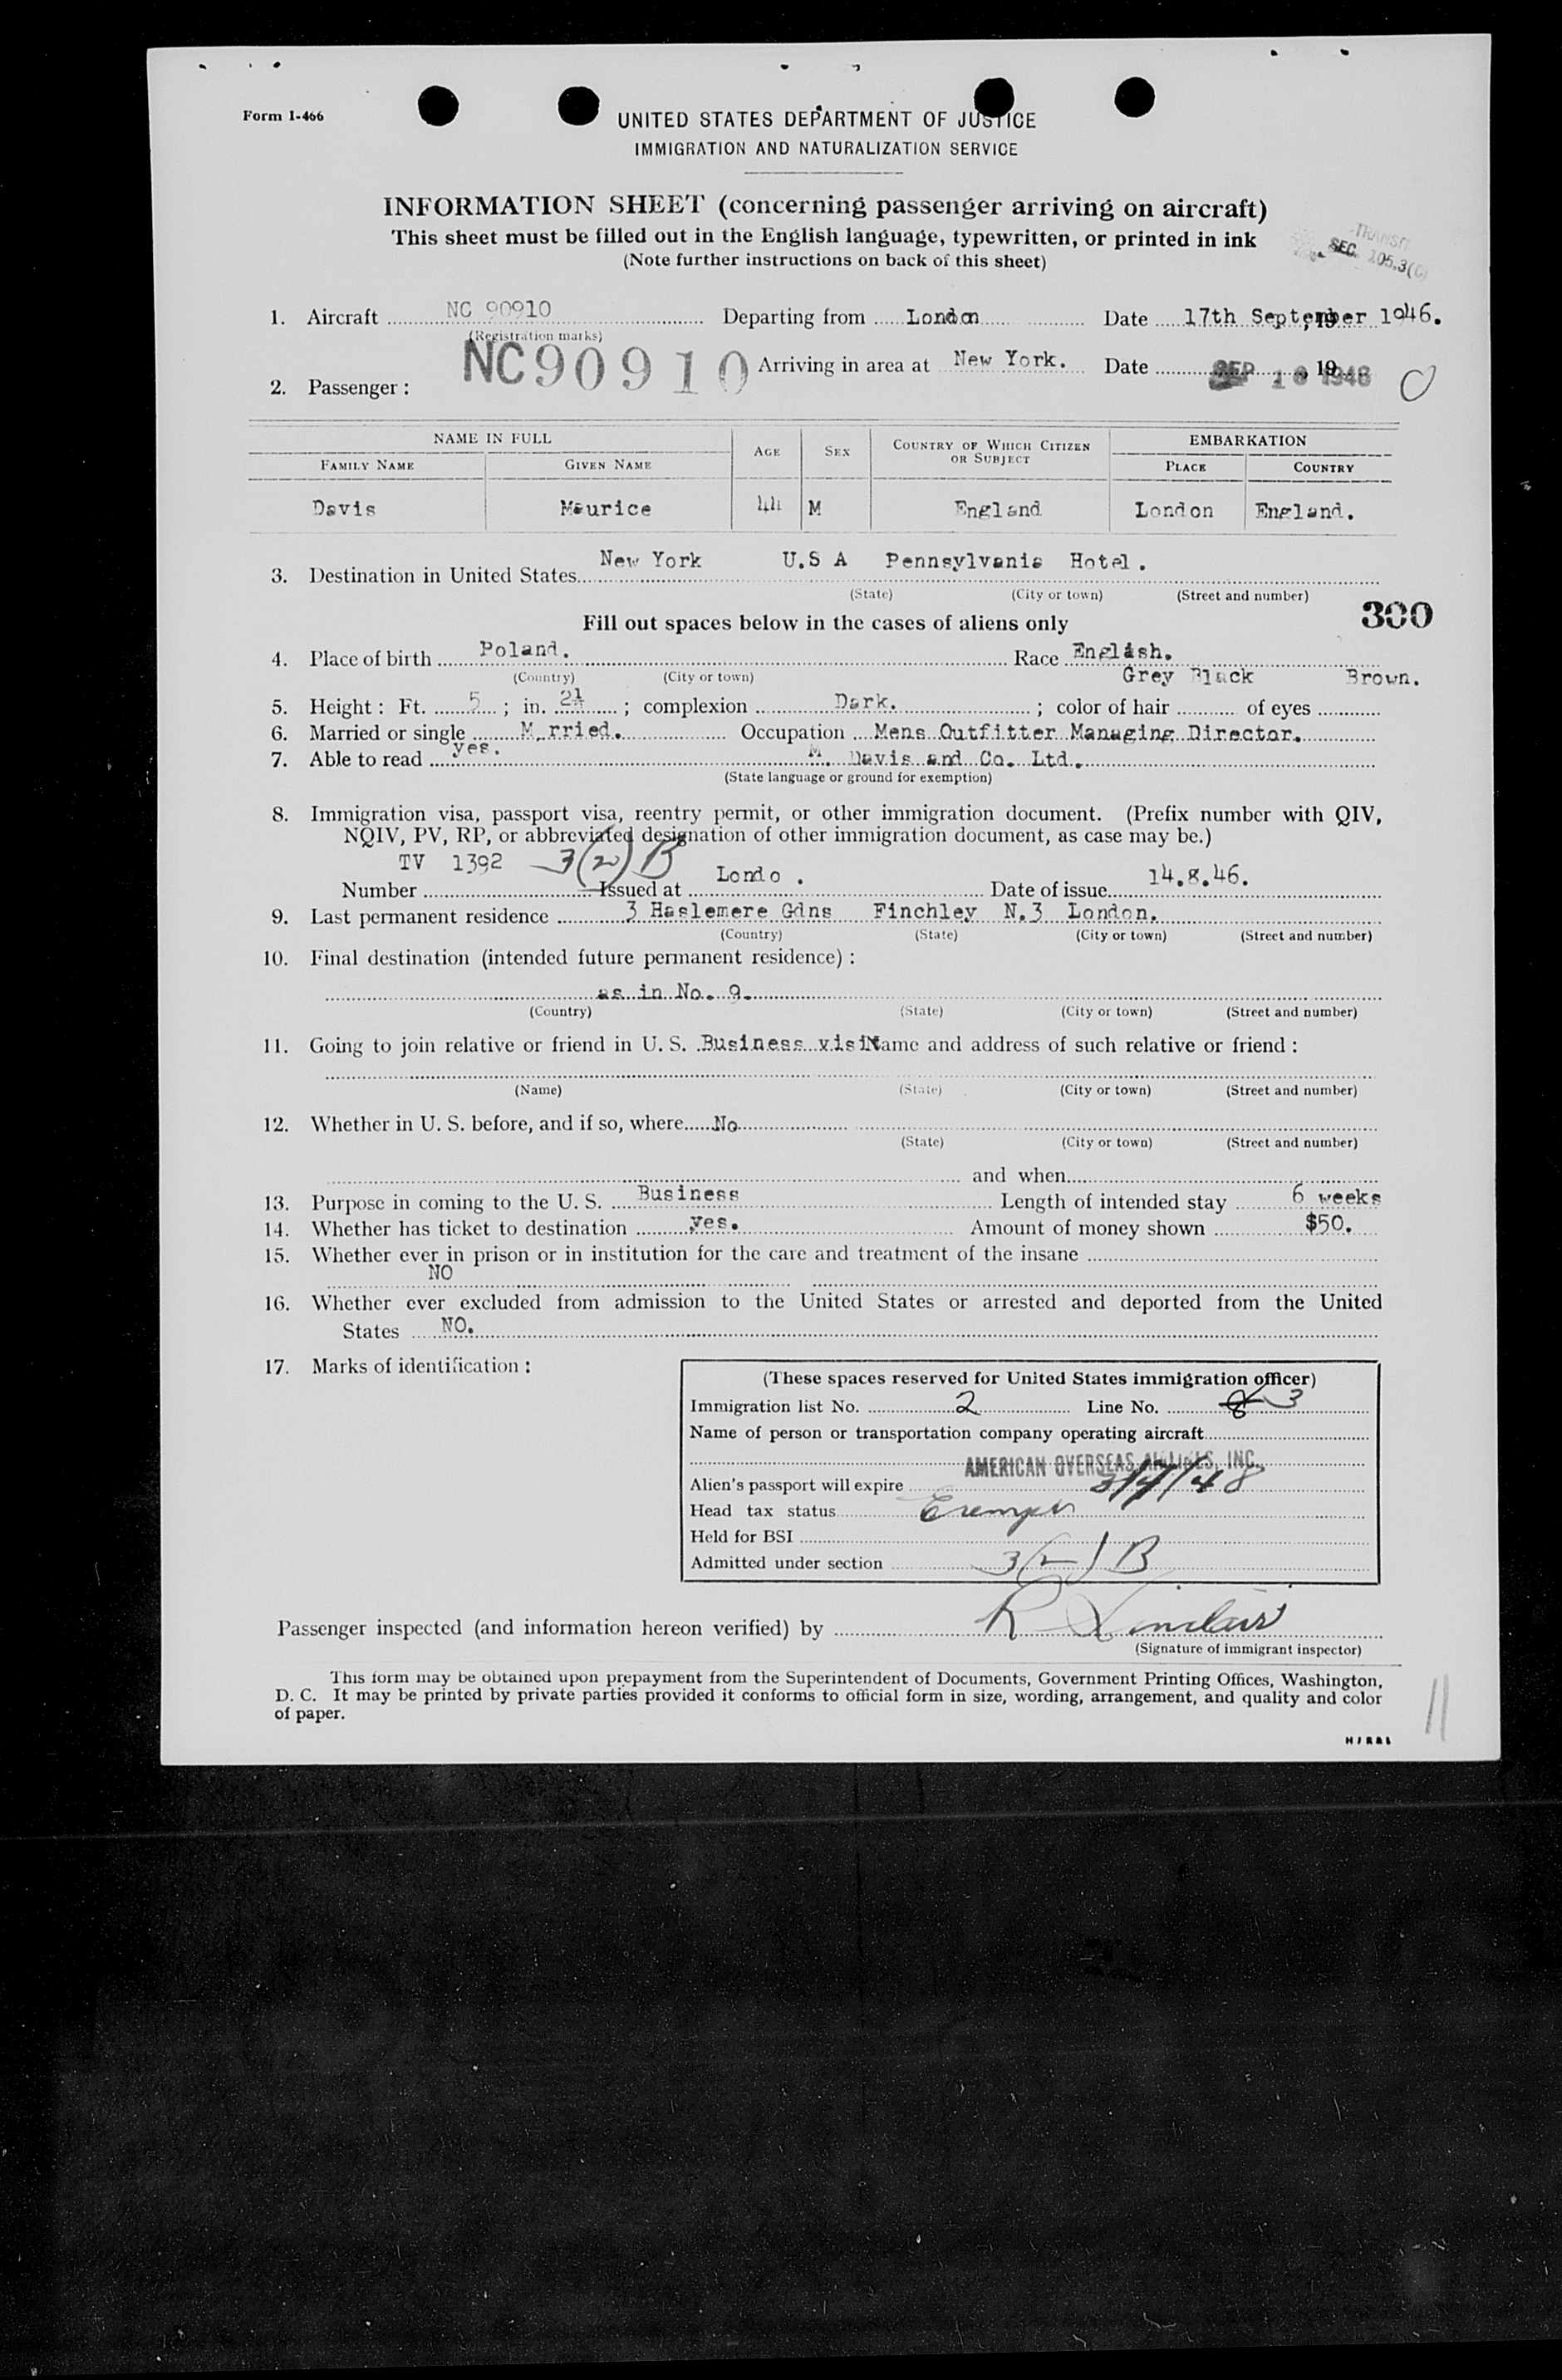 Form I-466
UNITED STATES DEPARTMENT OF JUSTICE
IMMIGRATION AND NATURALIZATION SERVICE
INFORMATION SHEET (concerning passenger arriving on aircraft)
This sheet must be filled out in the English language, typewritten, or printed in ink
(Note further instructions on back of this sheet)
SEC. 105.3(C)
1. Aircraft NC 90910 Departing from London Date 17th September 1946.
(Registration marks)
NC90910 Arriving in area at New York. Date SEP 18 1946
2. Passenger :
NAME IN FULL AGE SEX COUNTRY OF WHICH CITIZEN OR SUBJECT EMBARKATION
FAMILY NAME GIVEN NAME PLACE COUNTRY
Davis Maurice 44 M England London England.
3. Destination in United States New York U.S A Pennsylvania Hotel.
(State) (City or town) (Street and number)
300
Fill out spaces below in the cases of aliens only
4. Place of birth Poland. Race English.
(Country) (City or town) Grey Black Brown.
5. Height : Ft. 5 ; in. 2½ ; complexion Dark. ; color of hair of eyes
6. Married or single M rried. Occupation Mens Outfitter Managing Director.
7. Able to read yes. M. Davis and Co. Ltd.
(State language or ground for exemption)
8. Immigration visa, passport visa, reentry permit, or other immigration document. (Prefix number with QIV,
NQIV, PV, RP, or abbreviated designation of other immigration document, as case may be.)
TV 1392 3(2) B Londo . 14.8.46.
Number Issued at Date of issue
9. Last permanent residence 3 Haslemere Gdns Finchley N.3 London.
(Country) (State) (City or town) (Street and number)
10. Final destination (intended future permanent residence) :
as in No. 9.
(Country) (State) (City or town) (Street and number)
11. Going to join relative or friend in U. S. Business visit Name and address of such relative or friend :
(Name) (State) (City or town) (Street and number)
12. Whether in U. S. before, and if so, where No
(State) (City or town) (Street and number)
and when
13. Purpose in coming to the U. S. Business Length of intended stay 6 weeks
14. Whether has ticket to destination yes. Amount of money shown $50.
15. Whether ever in prison or in institution for the care and treatment of the insane
NO
16. Whether ever excluded from admission to the United States or arrested and deported from the United
States NO.
17. Marks of identification :
(These spaces reserved for United States immigration officer)
Immigration list No. 2 Line No. 8 3
Name of person or transportation company operating aircraft
AMERICAN OVERSEAS AIRLINES, INC.
Alien's passport will expire 3/7/48
Head tax status Exempt
Held for BSI
Admitted under section 3(2) B
Passenger inspected (and information hereon verified) by R Sinclair
(Signature of immigrant inspector)
This form may be obtained upon prepayment from the Superintendent of Documents, Government Printing Offices, Washington,
D. C. It may be printed by private parties provided it conforms to official form in size, wording, arrangement, and quality and color
of paper.
11